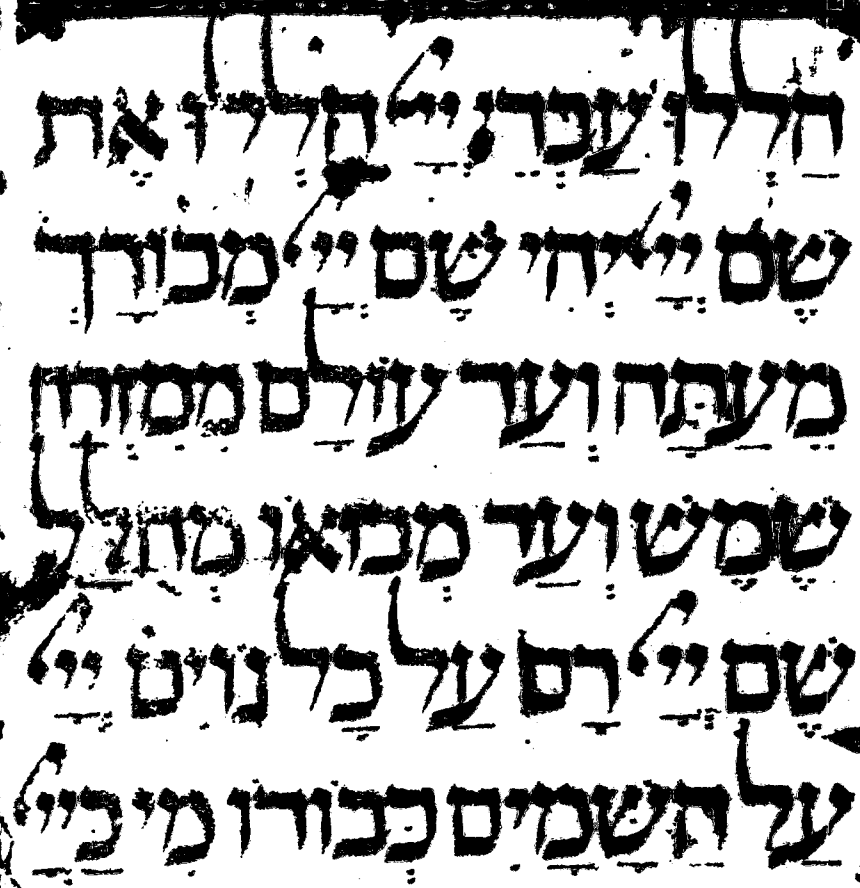 הללו עבדי ייי הללו את
שם ייי יהי שם ייי מבורך
מעתה ועד עולם ממזרח
שמש ועד מבואו מהלל
שם ייי רם על כל גוים ייי
על השמים כבודו מי כייי